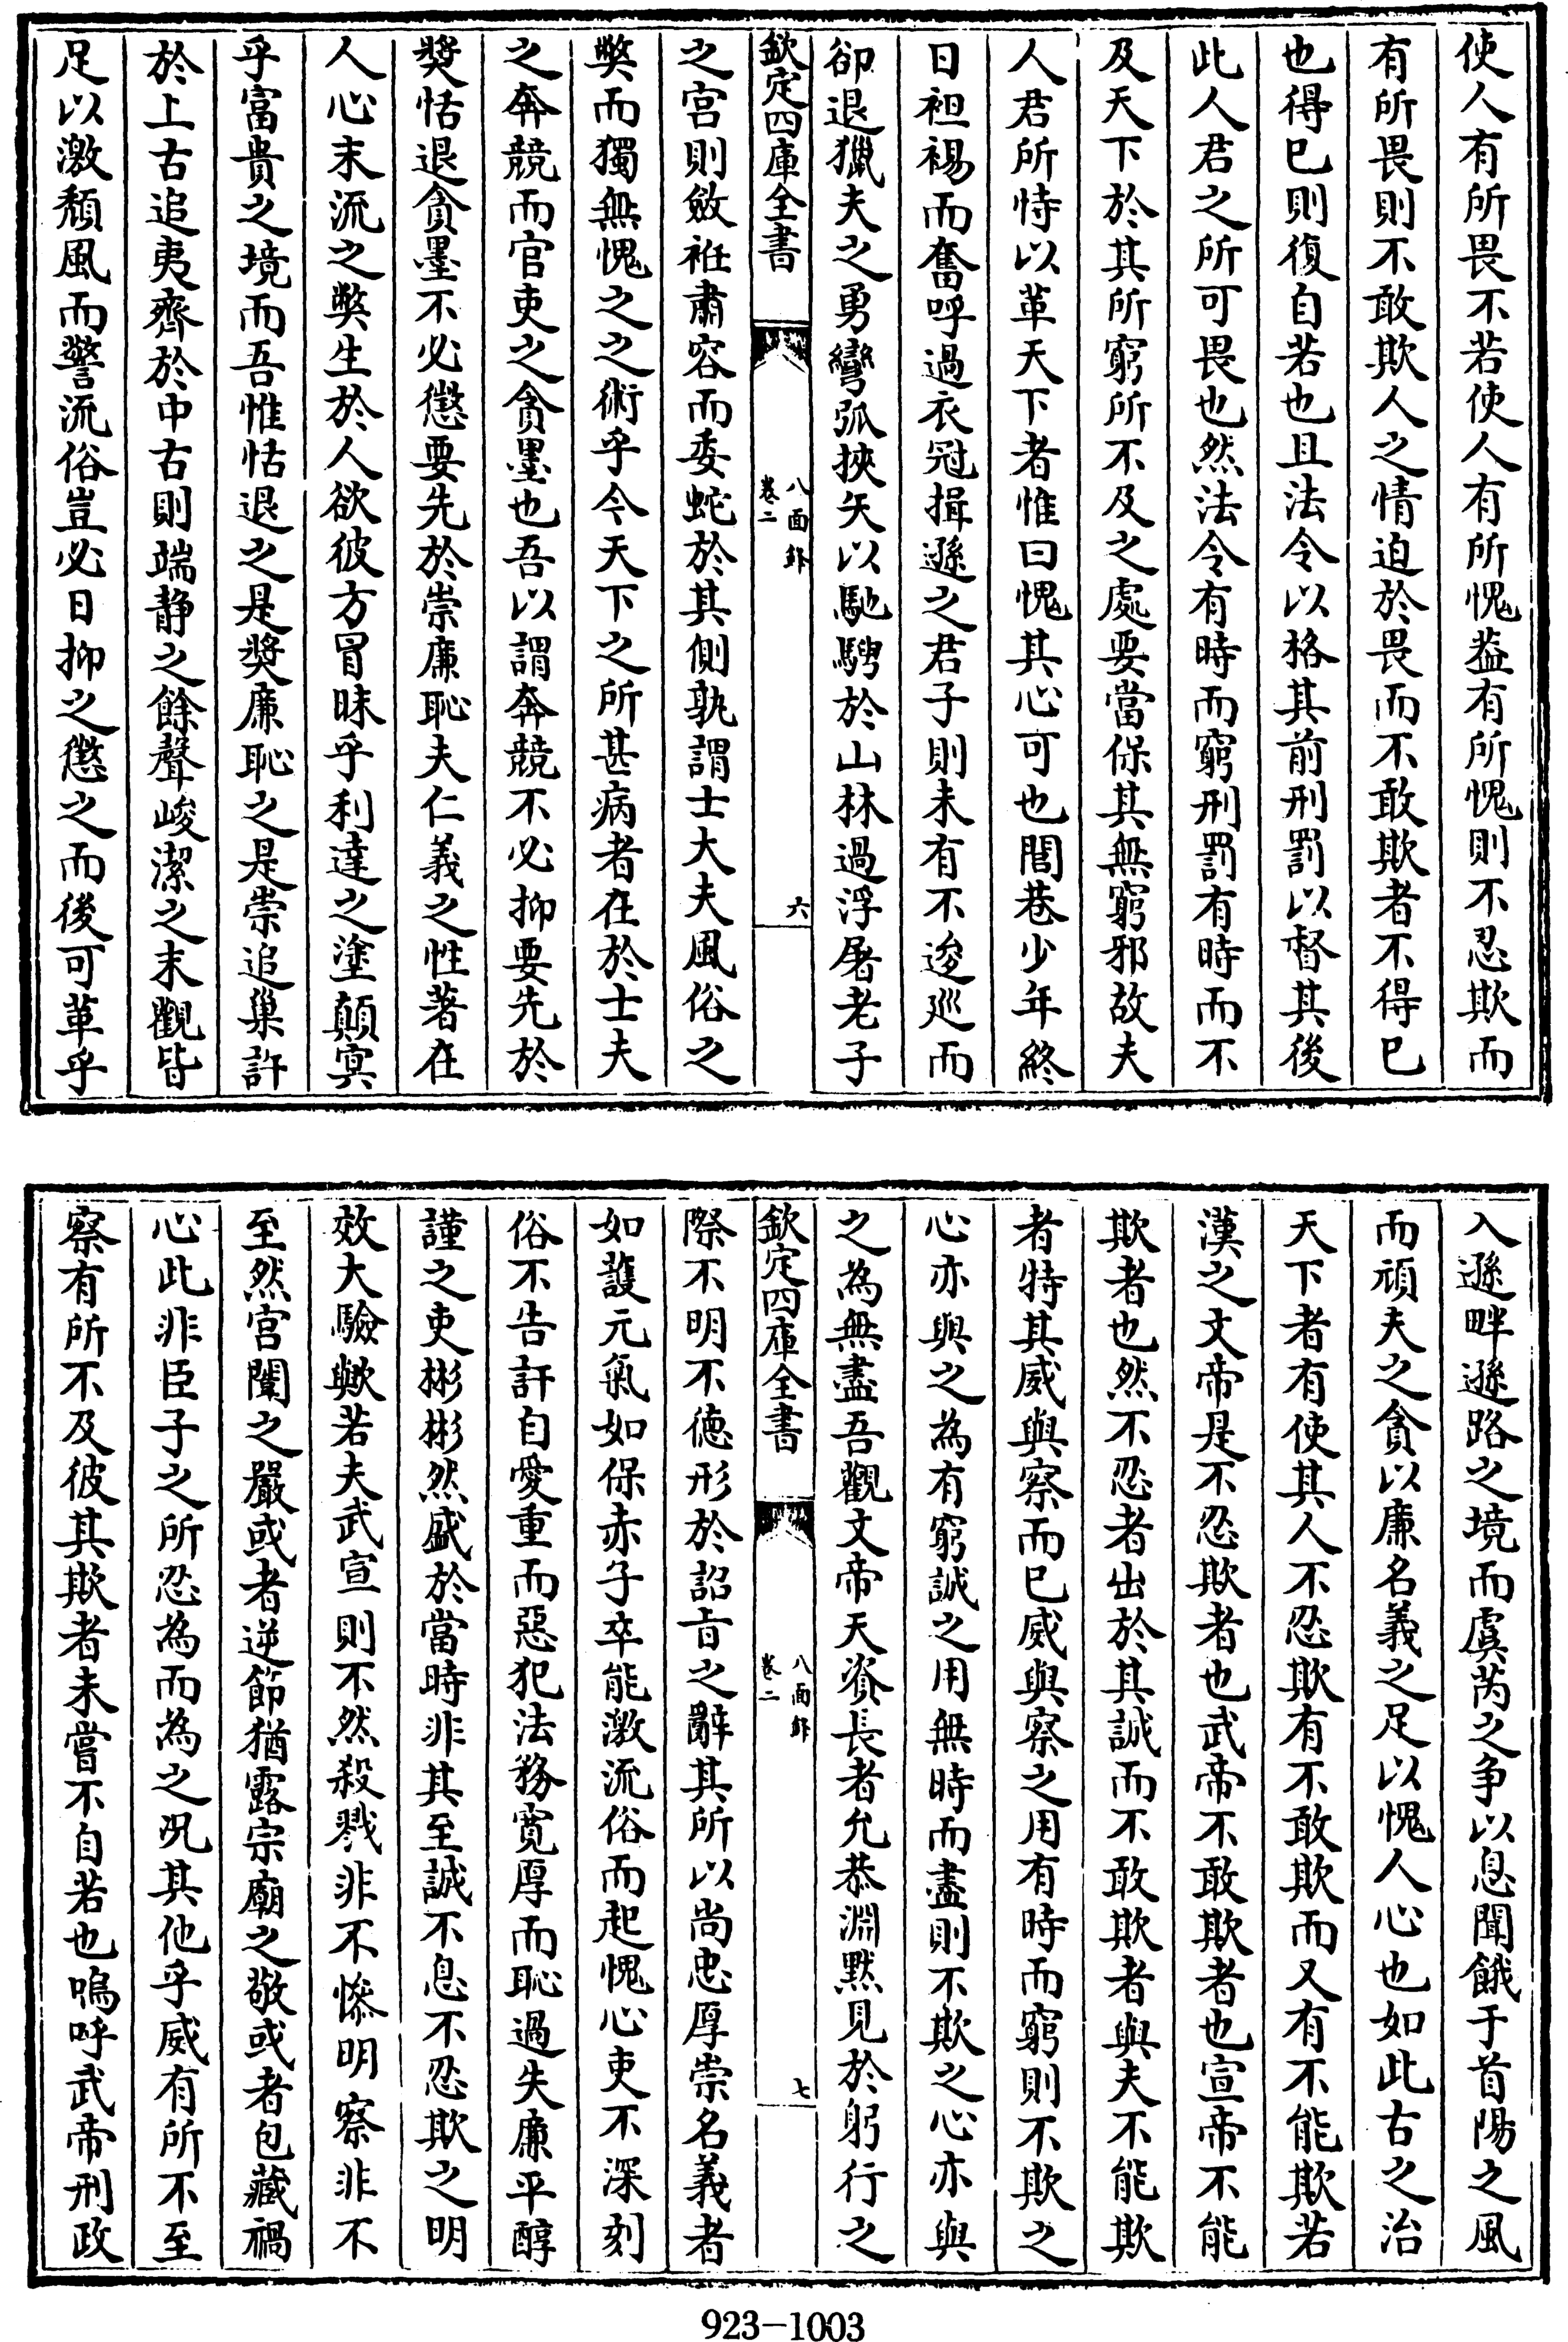 使人有所畏不若使人有所愧葢有所愧則不忍欺而
有所畏則不敢欺人之情迫於畏而不敢欺者不得已
也得已則復自若也且法令以格其前刑罰以督其後
此人君之所可畏也然法令有時而窮刑罰有時而不
及天下於其所窮所不及之處要當保其無窮邪故夫
人君所恃以革天下者惟曰愧其心可也閭巷少年終
日袒裼而奮呼過衣冠揖遜之君子則未有不逡廵而
卻退獵夫之勇彎弧挾矢以馳騁於山林過浮屠老子
欽定四庫全書
八面鋒
卷二
六
之宫則斂袵肅容而委蛇於其側孰謂士大夫風俗之
獘而獨無愧之之術乎今天下之所甚病者在於士夫
之奔競而官吏之貪墨也吾以謂奔競不必抑要先於
奬恬退貪墨不必懲要先於崇廉恥夫仁義之性著在
人心末流之獘生於人欲彼方冒昧乎利達之塗顛冥
乎富貴之境而吾惟恬退之是奬廉恥之是崇追巢許
於上古追夷齊於中古則端静之餘聲峻潔之末觀皆
足以激頽風而警流俗豈必日抑之懲之而後可革乎
入遜畔遜路之境而虞芮之争以息聞餓于首陽之風
而頑夫之貪以廉名義之足以愧人心也如此古之治
天下者有使其人不忍欺有不敢欺而又有不能欺若
漢之文帝是不忍欺者也武帝不敢欺者也宣帝不能
欺者也然不忍者出於其誠而不敢欺者與夫不能欺
者特其威與察而已威與察之用有時而窮則不欺之
心亦與之為有窮誠之用無時而盡則不欺之心亦與
之為無盡吾觀文帝天資長者允恭淵黙見於躬行之
欽定四庫全書
八面鋒
卷二
七
際不明不德形於詔旨之辭其所以尚忠厚崇名義者
如護元氣如保赤子卒能激流俗而起愧心吏不深刻
俗不告訐自愛重而惡犯法務寛厚而恥過失廉平醇
謹之吏彬彬然盛於當時非其至誠不息不忍欺之明
效大驗歟若夫武宣則不然殺戮非不慘明察非不
至然宫闈之嚴或者逆節猶露宗廟之敬或者包藏禍
心此非臣子之所忍為而為之况其他乎威有所不至
察有所不及彼其欺者未嘗不自若也嗚呼武帝刑政
923-1003